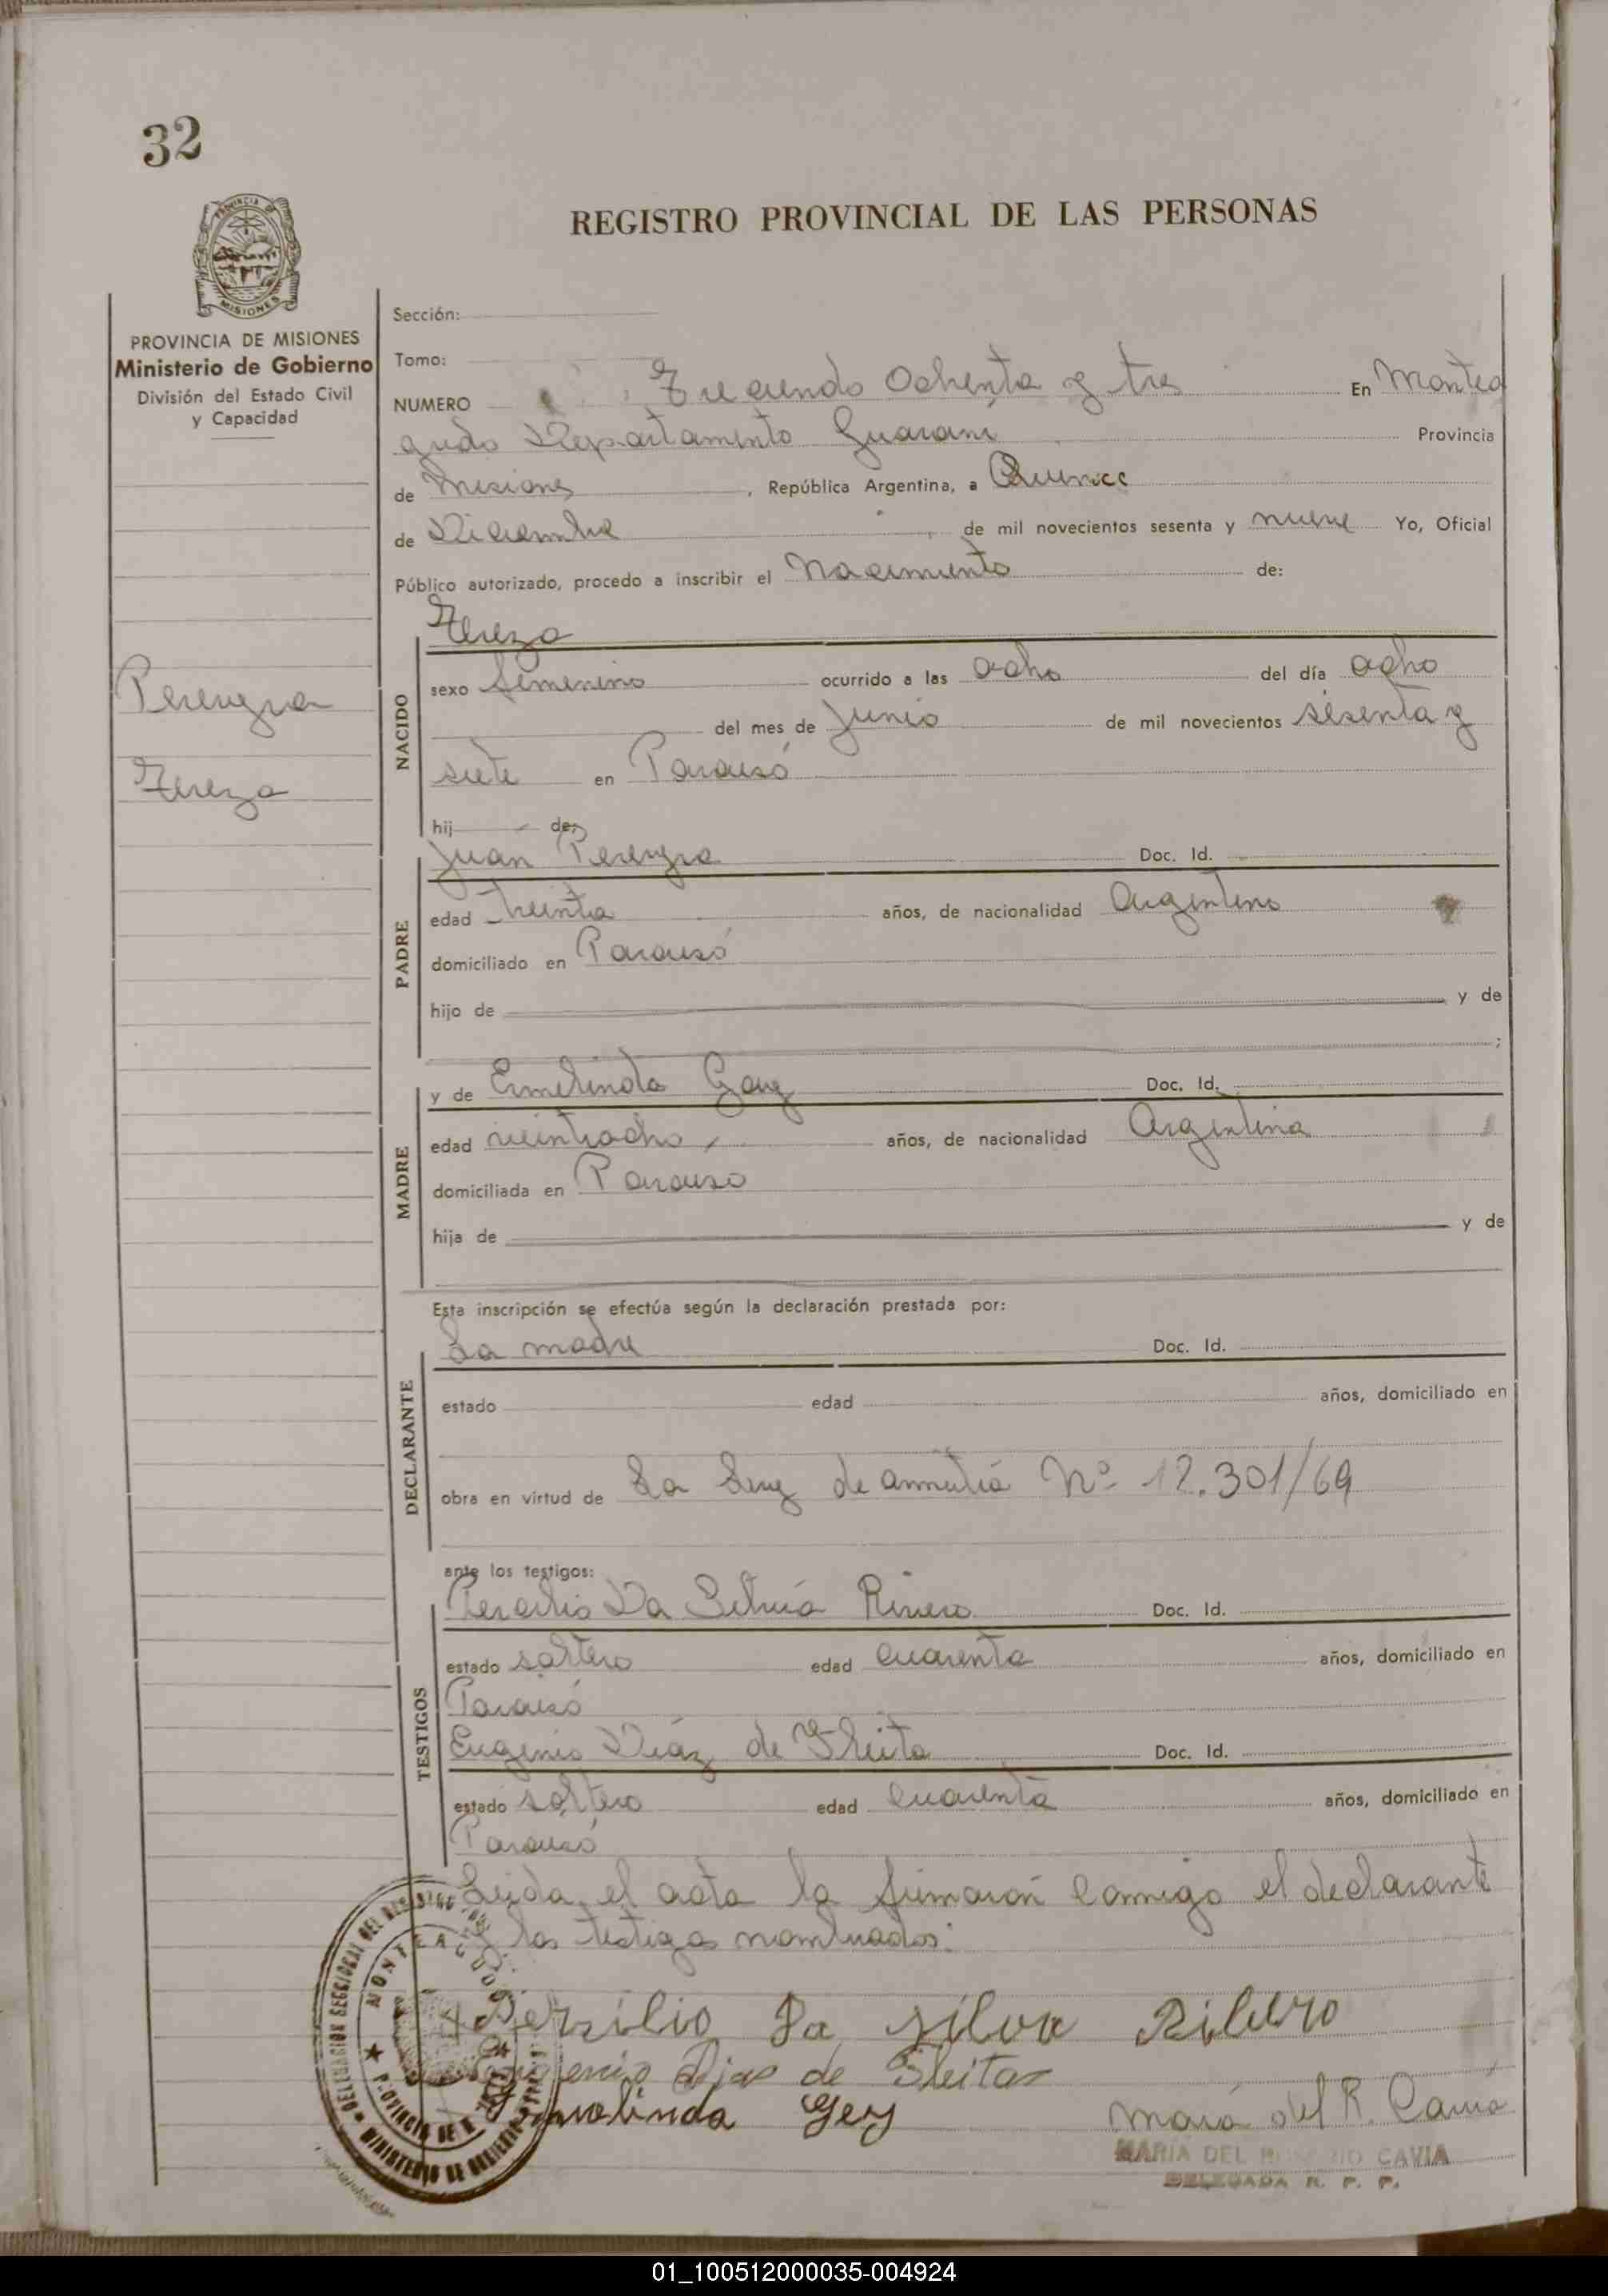 32
REGISTRO PROVINCIAL DE LAS PERSONAS
PROVINCIA DE MISIONES
Ministerio de Gobierno
División del Estado Civil
y Capacidad
Pereyra
Tereza
Sección:
Tomo:
NUMERO Ochenta y tres En Montea
gudo Departamento Guaraní Provincia
de Misiones, República Argentina, a Quince
de Diciembre de mil novecientos sesenta y nueve Yo, Oficial
Público autorizado, procedo a inscribir el Nacimiento de:
NACIDO
Tereza
sexo femenino ocurrido a las ocho del día ocho
del mes de Junio de mil novecientos sesenta y
siete en Paraiso
hij de:
PADRE
Juan Pereyra Doc. Id.
edad treinta años, de nacionalidad Argentino
domiciliado en Paraiso
hijo de y de
;
MADRE
y de Ermelinda Doc. Id.
edad veintiocho, años, de nacionalidad Argentina
domiciliada en Paraiso
hija de y de
Esta inscripción se efectúa según la declaración prestada por:
DECLARANTE
La madre Doc. Id.
estado edad años, domiciliado en
obra en virtud de La Ley de Nº 12.301/69
ante los testigos:
TESTIGOS
Da Silvia Rivero Doc. Id.
estado soltero edad cuarenta años, domiciliado en
Paraisó
Eugenio Díaz de Doc. Id.
estado soltero edad cuarenta años, domiciliado en
Paraisó
Leida el acta la firmaron conmigo el declarante
y los testigos nombrados:
Da Silva Ribero
de
Gey
María del R. Cavia
MARIA DEL ROSARIO CAVIA
DELEGADA R. P. P.
DELEGACION SECCIONAL DEL REGISTRO
MONTEAGUDO
PROVINCIA DE
MINISTERIO DE GOBIERNO
01_100512000035-004924